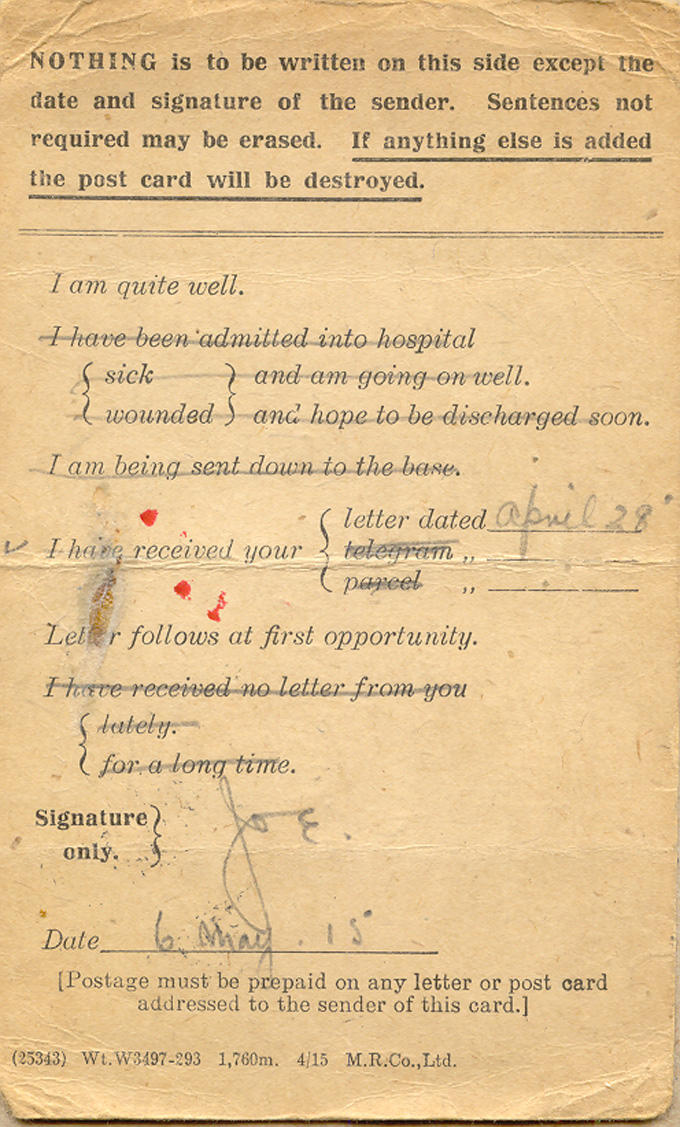 NOTHING is to be written on this side except the
date and signature of the sender. Sentences not
required may be erased. If anything else is added
the post card will be destroyed.
I am quite well.
I have been admitted into hospital
{ sick } and am going on well.
{ wounded } and hope to be discharged soon.
I am being sent down to the base.
letter dated April 28
I have received your { telegram „
parcel „
Letter follows at first opportunity.
I have received no letter from you
{ lately.
for a long time.
Signature }
only.
Joe.
Date 6 May. 15
[Postage must be prepaid on any letter or post card
addressed to the sender of this card.]
(25343) Wt.W3497-293 1,760m. 4/15 M.R.Co.,Ltd.